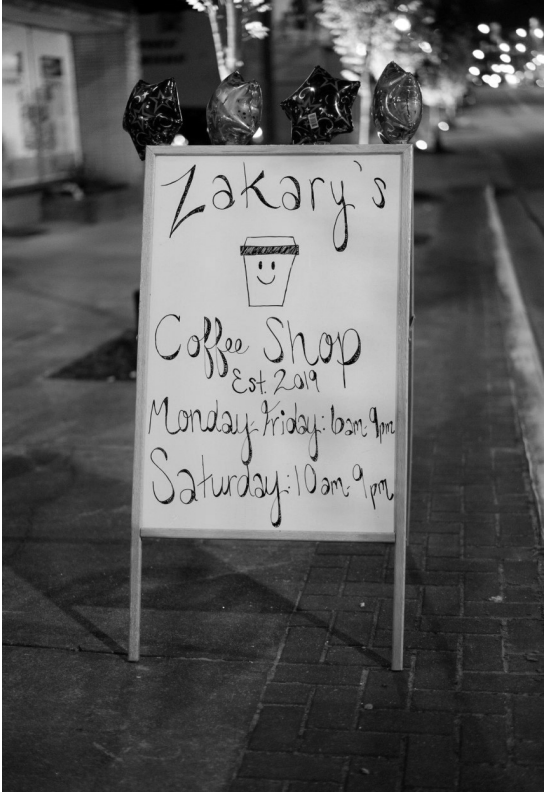 Zakary's
Coffee Shop
Est. 2019
Monday-Friday: 6am-9pm
Saturday: 10am-9pm